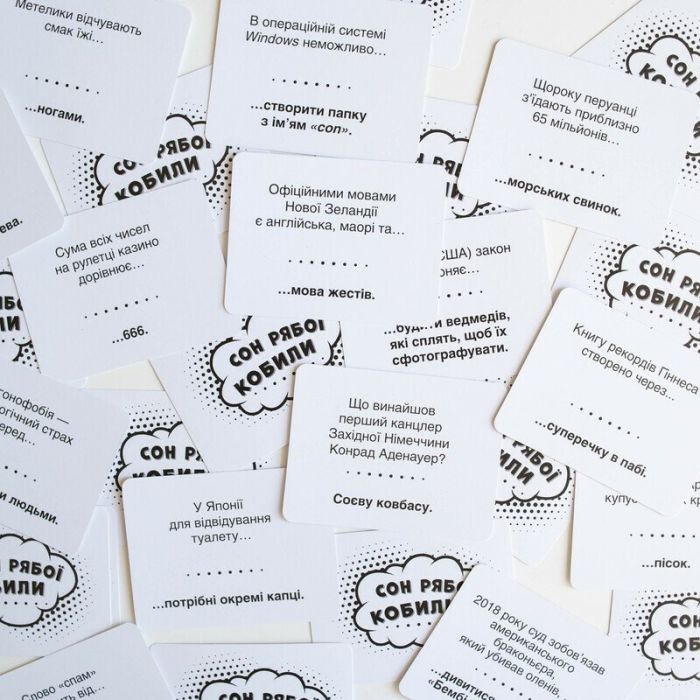 Метелики відчувають
смак їжі...
...ногами.
В операційній системі
Windows неможливо...
...створити папку
з ім'ям «con».
Щороку перуанці
з'їдають приблизно
65 мільйонів...
...морських свинок.
СОН РЯБОЇ
КОБИЛИ
Офіційними мовами
Нової Зеландії
є англійська, маорі та...
...мова жестів.
Сума всіх чисел
на рулетці казино
дорівнює...
...666.
США) закон
...будити ведмедів,
які сплять, щоб їх
сфотографувати.
СОН РЯ
КОБИЛИ
СОН РЯБОЇ
КОБИЛИ
Книгу рекордів Гіннеса
створено через...
...суперечку в пабі.
Що винайшов
перший канцлер
Західної Німеччини
Конрад Аденауер?
Соєву ковбасу.
людьми.
СОН РЯБОЇ
КОБИЛИ
СОН РЯБОЇ
КОБИЛИ
У Японії
для відвідування
туалету...
...потрібні окремі капці.
...пісок.
СОН РЯБОЇ
КОБИЛИ
2018 року суд зобов'язав
американського
браконьєра,
який убивав оленів,
...дивитися
«Бембі
Слово «спам»
від...
СОН РЯБОЇ